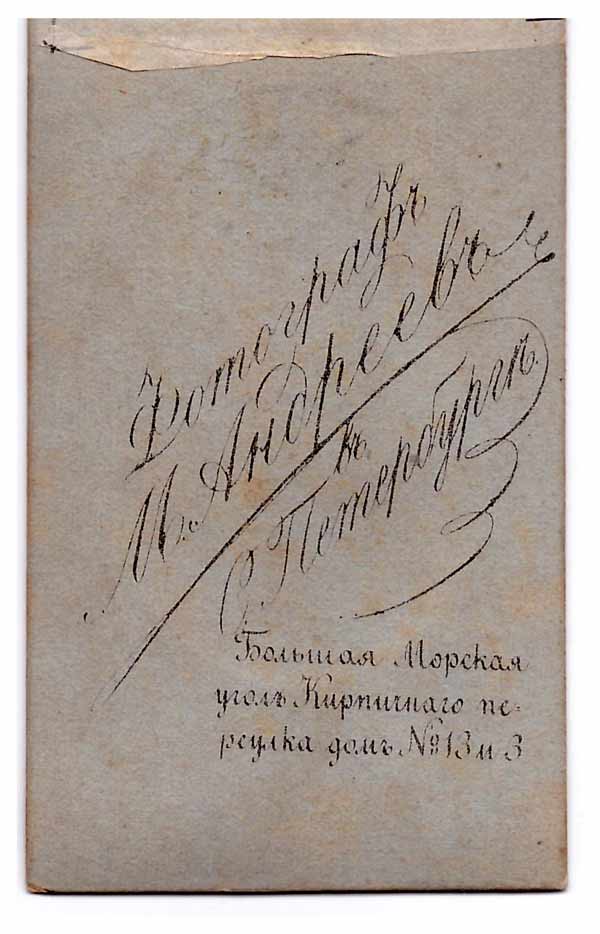 Фотографъ
М. Андреевъ
въ
С. Петербургѣ.
Большая Морская
уголъ Кирпичнаго пе-
реулка домъ №13 и 3